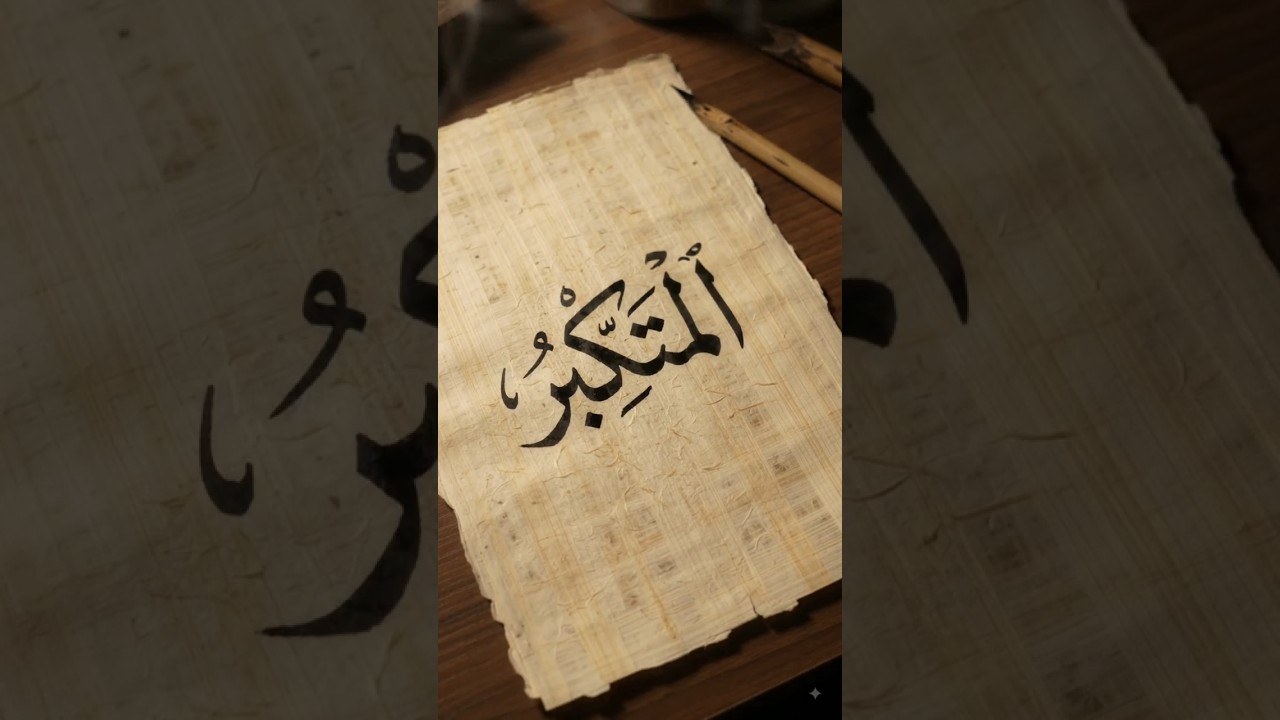 ٱلْمُتَكَبِّرُ